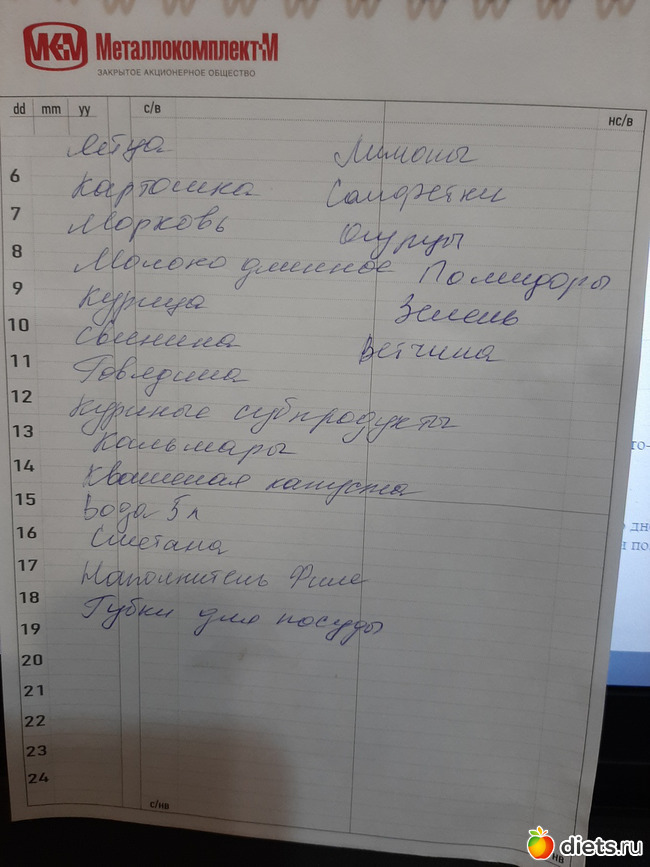 МКМ Металлокомплект-М
ЗАКРЫТОЕ АКЦИОНЕРНОЕ ОБЩЕСТВО
dd mm yy с/в нс/в
Яйца Лимоны
6
Картошка Салфетки
7
Морковь Огурцы
8
Молоко длинное Помидоры
9
Курица Зелень
10
Свинина Ветчина
11
Говядина
12
Куриные субпродукты
13
Кальмары
14
Квашеная капуста
15
Вода 5 л
16
Сметана
17
Наполнитель Филе
18
Губки для посуды
19
20
21
22
23
24
с/нв нв
diets.ru